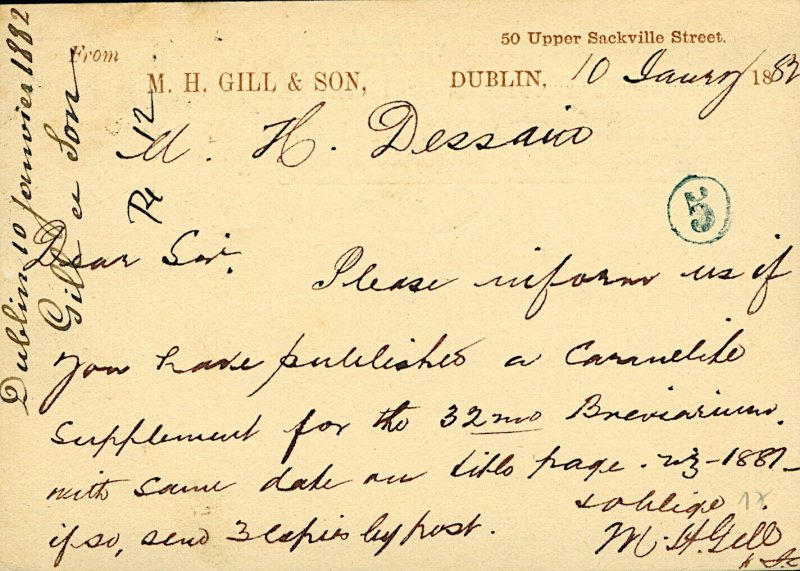 50 Upper Sackville Street.
From
M. H. GILL & SON, DUBLIN, 10 Jaury 1882
M. H. Dessain
Dear Sir.
Please inform us if
you have published a Carmelite
Supplement for the 32mo Breviarium.
with same date on title page. viz-1881-
if so, send 3 copies by post.
& oblige
M. H. Gill
& So
Dublin 10 janvier 1882
Gill & Son
12
5